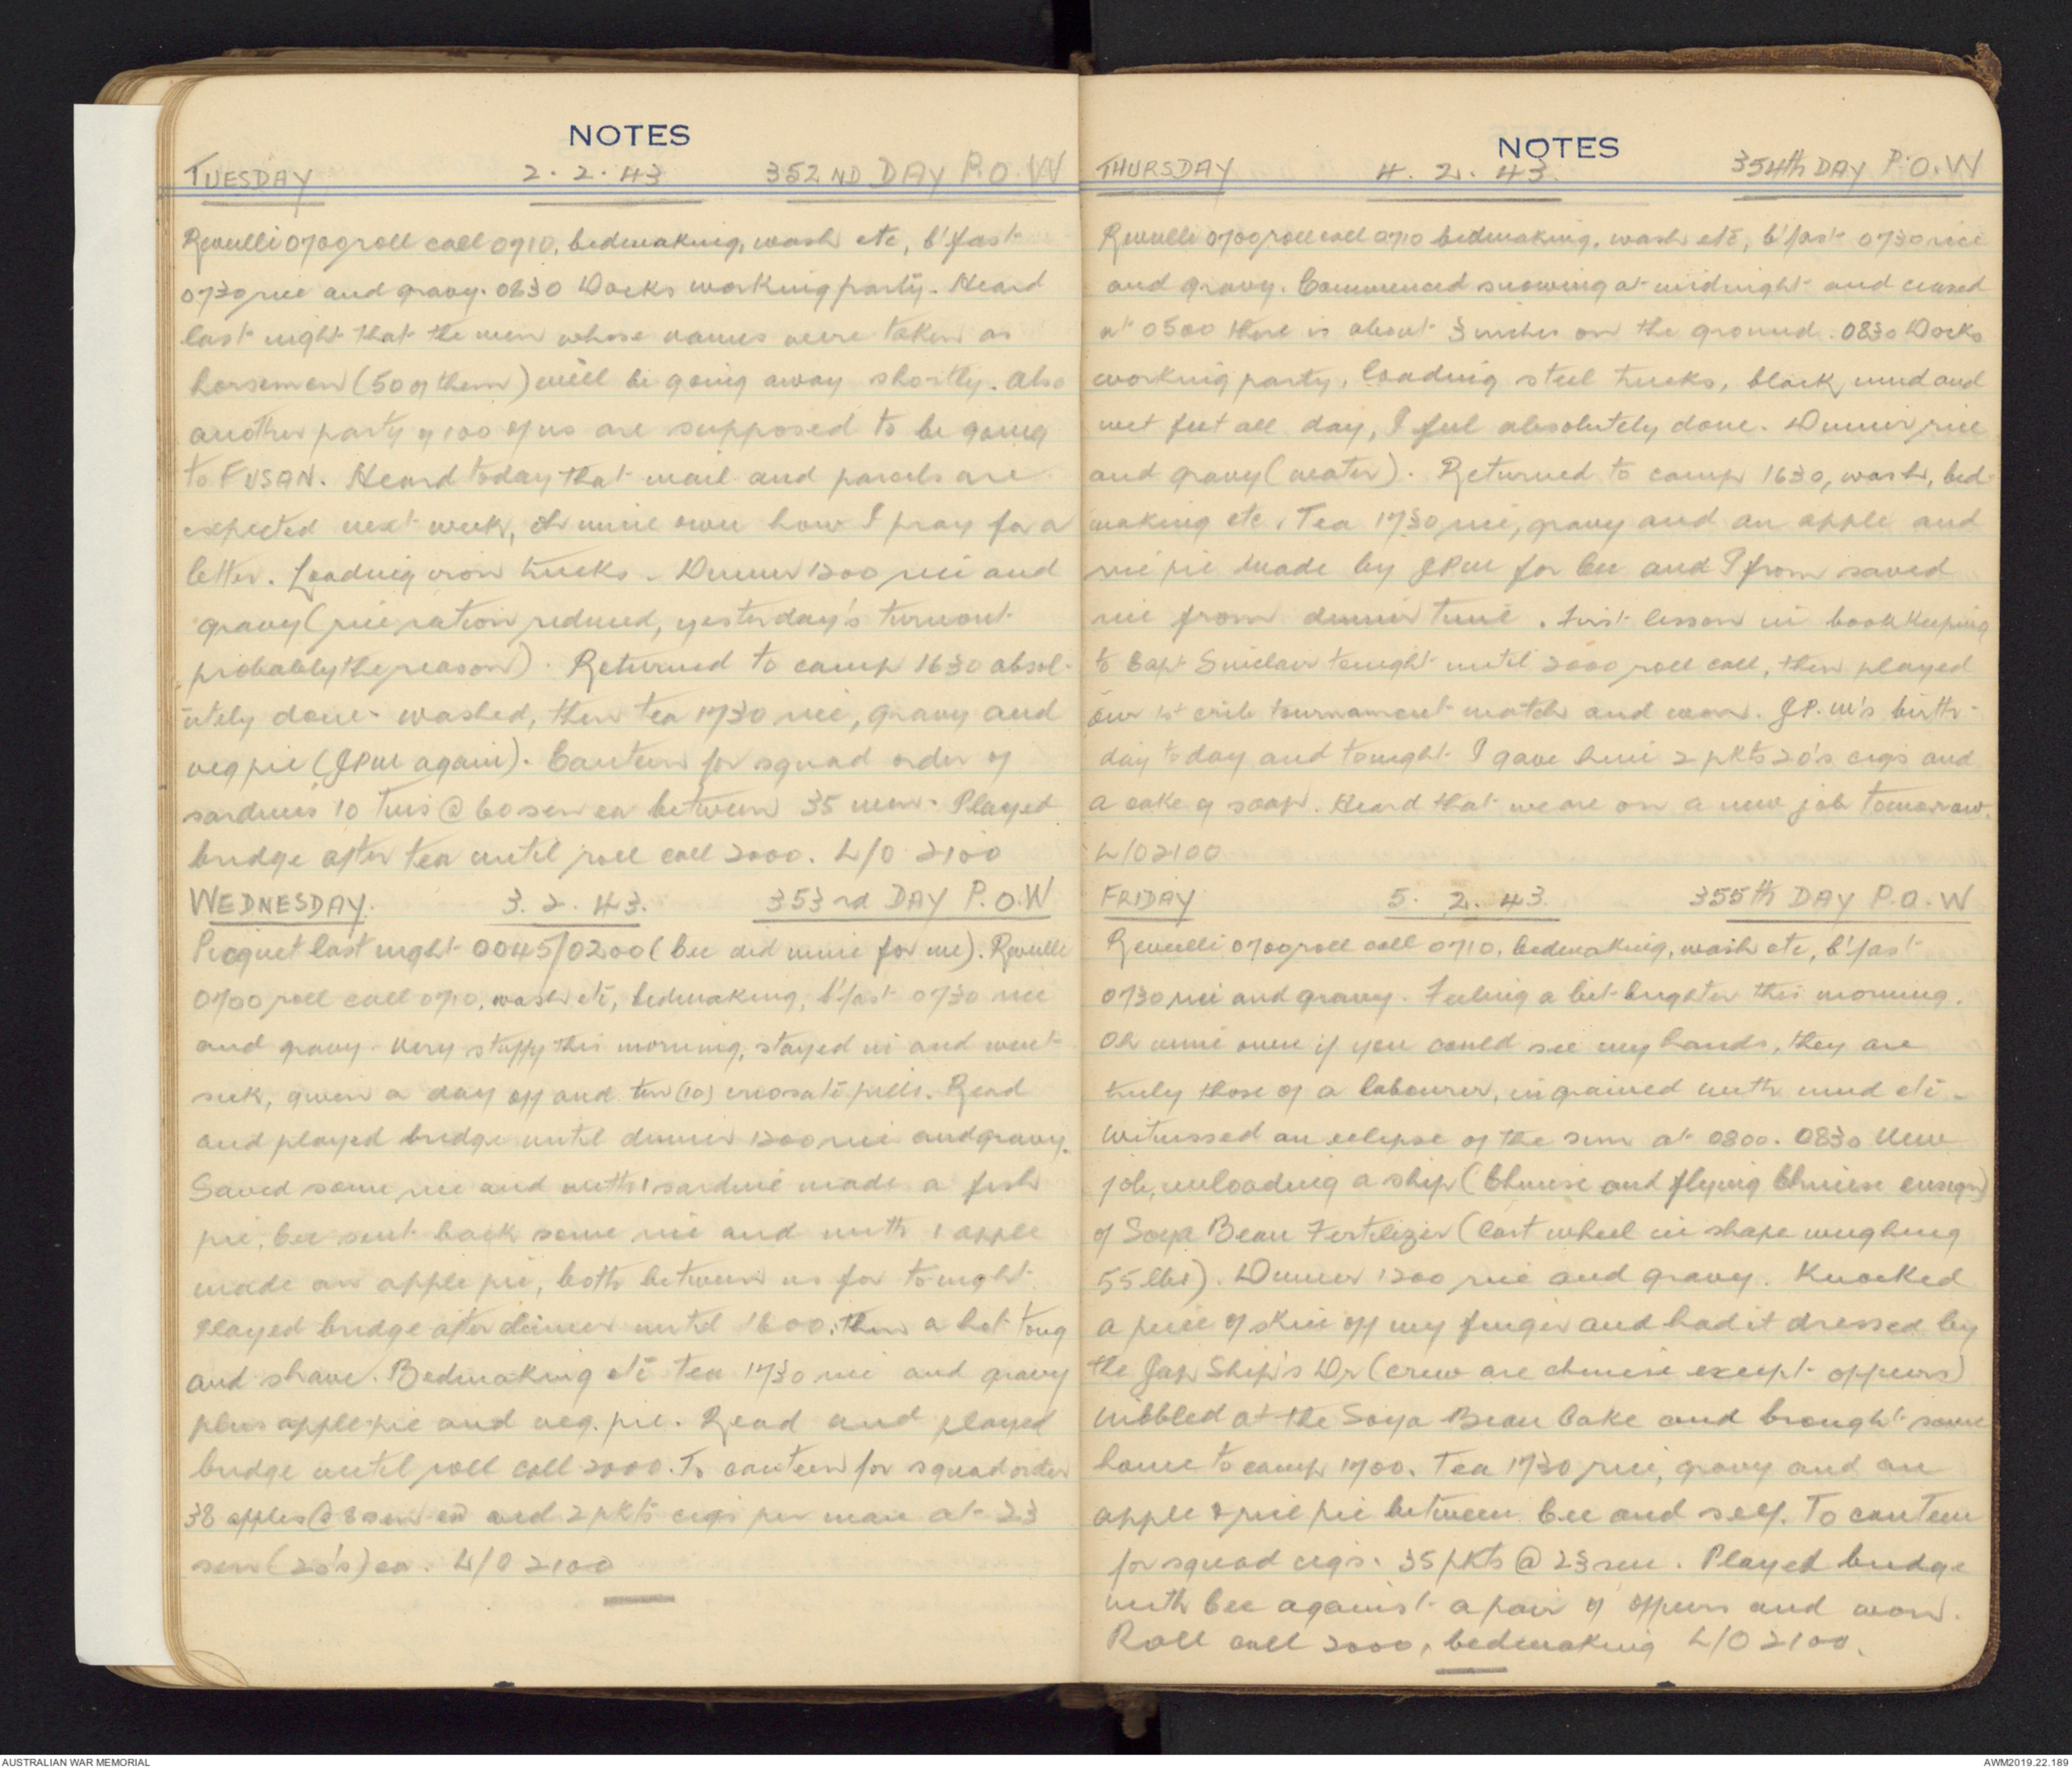 NOTES
TUESDAY 2. 2. 43 352ND DAY P.O.W
Reveille 0700 roll call 0710, bedmaking, wash etc, b'fast
0730 rice and gravy. 0830 Docks working party. Heard
last night that the men whose names were taken as
horsemen (50 of them) will be going away shortly. Also
another party of 100 of us are supposed to be going
to FUSAN. Heard today that mail and parcels are
expected next week, oh mine own how I pray for a
letter. Loading iron trucks. Dinner 1200 rice and
gravy (rice ration reduced, yesterday's turnout
probably the reason). Returned to camp 1630 absol-
utely done - washed, then tea 1730 rice, gravy and
veg pie (JPM again). Canteen for squad order of
sardines 10 tins @ 60 sen ea between 35 men. Played
bridge after tea until roll call 2000. L/O 2100
WEDNESDAY. 3. 2. 43. 353rd DAY P.O.W
Picquet last night 0045/0200 (Cec did mine for me). Reveille
0700 roll call 0710, wash etc, bedmaking, b'fast 0730 rice
and gravy. Very stuffy this morning, stayed in and went
sick, given a day off and ten (10) creosate pills. Read
and played bridge until dinner 1200 rice and gravy.
Saved some rice and with 1 sardine made a fish
pie, Cec sent back some rice and with 1 apple
made an apple pie, both between us for tonight.
Played bridge after dinner until 1600, then a hot tong
and shave. Bedmaking etc tea 1730 rice and gravy
plus apple pie and veg. pie. Read and played
bridge until roll call 2000. To canteen for squad order
38 apples @ 8 sen ea and 2 pkts cigs per man at 23
sen (20's) ea. L/O 2100
NOTES
THURSDAY 4. 2. 43. 354th DAY P.O.W
Reveille 0700 roll call 0710 bedmaking, wash etc, b'fast 0730 rice
and gravy. Commenced snowing at midnight and ceased
at 0500 there is about 3 inches on the ground. 0830 Docks
working party, loading steel trucks, black mud and
wet feet all day, I feel absolutely done. Dinner rice
and gravy (water). Returned to camp 1630, wash, bed-
making etc, Tea 1730 rice, gravy and an apple and
rice pie made by JPM for Cec and I from saved
rice from dinner time. First lesson in bookkeeping
to Capt Sinclair tonight until 2000 roll call, then played
our 1st crib tournament match and won. J.P.M's birth-
day today and tonight I gave him 2 pkts 20's cigs and
a cake of soap. Heard that we are on a new job tomorrow.
L/O 2100
FRIDAY 5. 2. 43. 355th DAY P.O.W
Reveille 0700 roll call 0710, bedmaking, wash etc, b'fast
0730 rice and gravy. Feeling a bit brighter this morning.
Oh mine own if you could see my hands, they are
truly those of a labourer, ingrained with mud etc -
Witnessed an eclipse of the sun at 0800. 0830 New
job, unloading a ship (Chinese and flying Chinese ensign)
of Soya Bean Fertilizer (Cart wheel in shape weighing
55 lbs). Dinner 1200 rice and gravy. Knocked
a piece of skin off my finger and had it dressed by
the Jap Ship's Dr (crew are chinese except officers)
Nibbled at the Soya Bean Cake and brought some
home to camp 1700. Tea 1730 rice, gravy and an
apple & rice pie between Cec and self. To canteen
for squad cigs. 35 pkts @ 23 sen. Played bridge
with Cec against a pair of officers and won.
Roll call 2000, bedmaking L/O 2100.
AUSTRALIAN WAR MEMORIAL
AWM2019.22.189